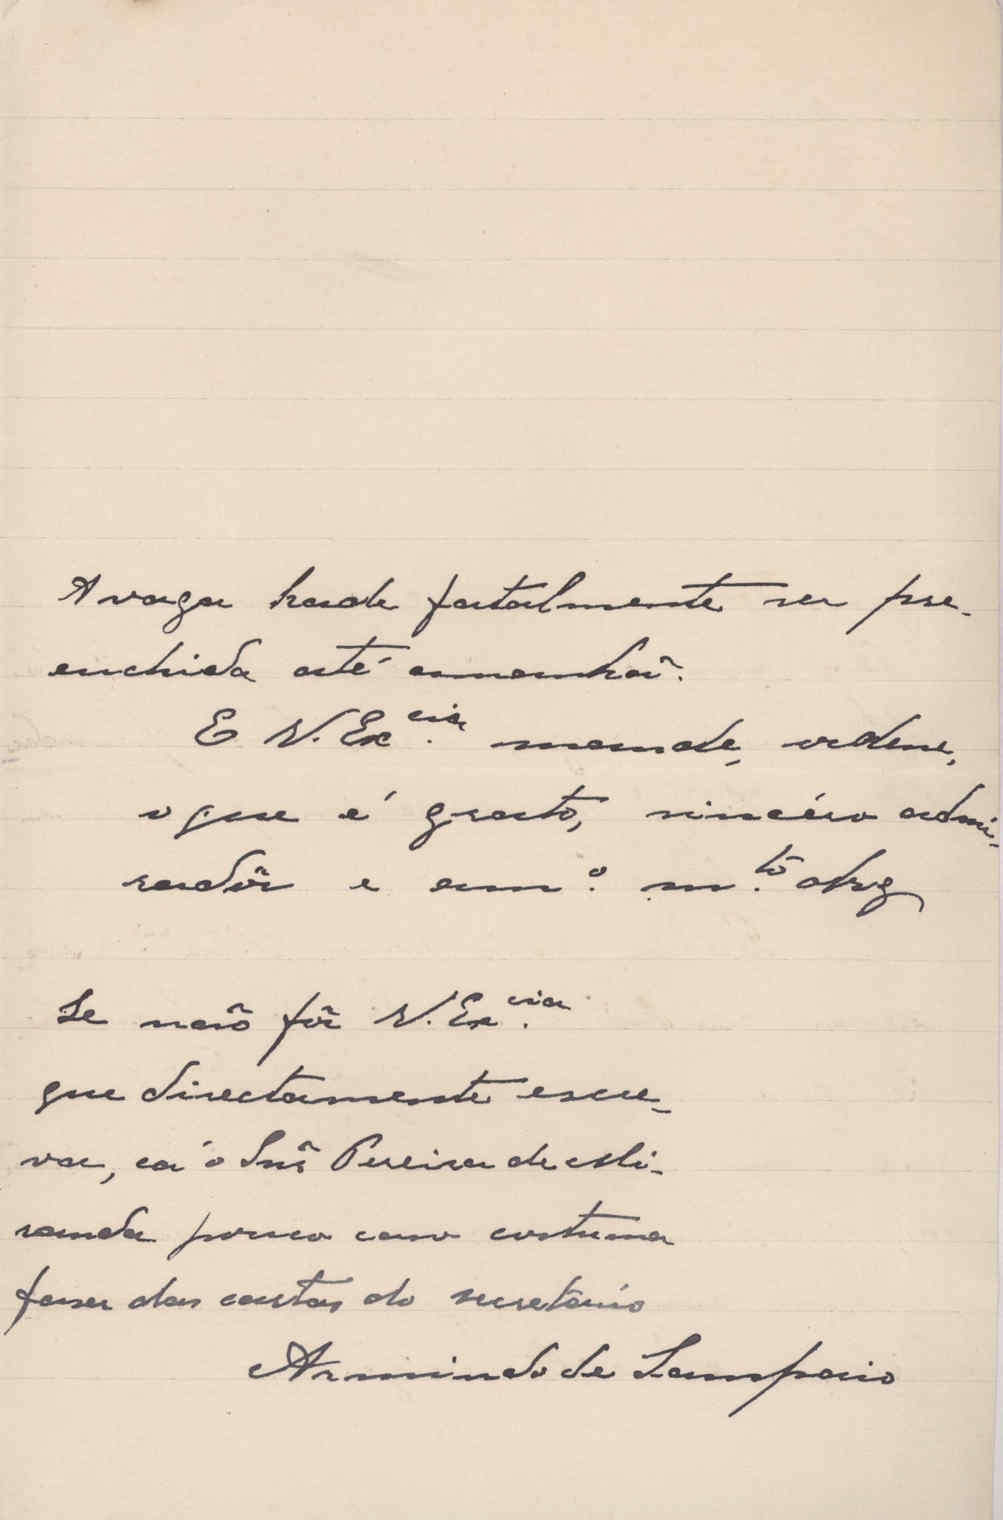 A vaga hade fatalmente ser pre-
enchida até amanhã.
E V. Ex.cia mande, ordene,
o que é grato, sincéro admi-
radôr e am.º m.tº obrg
Se não fôr V. Ex.cia
que directamente escre-
va, cá o Snr̃ Pereira de Mi-
randa pouco caso costuma
fazer das cartas do secretário
Armindo de Sampaio